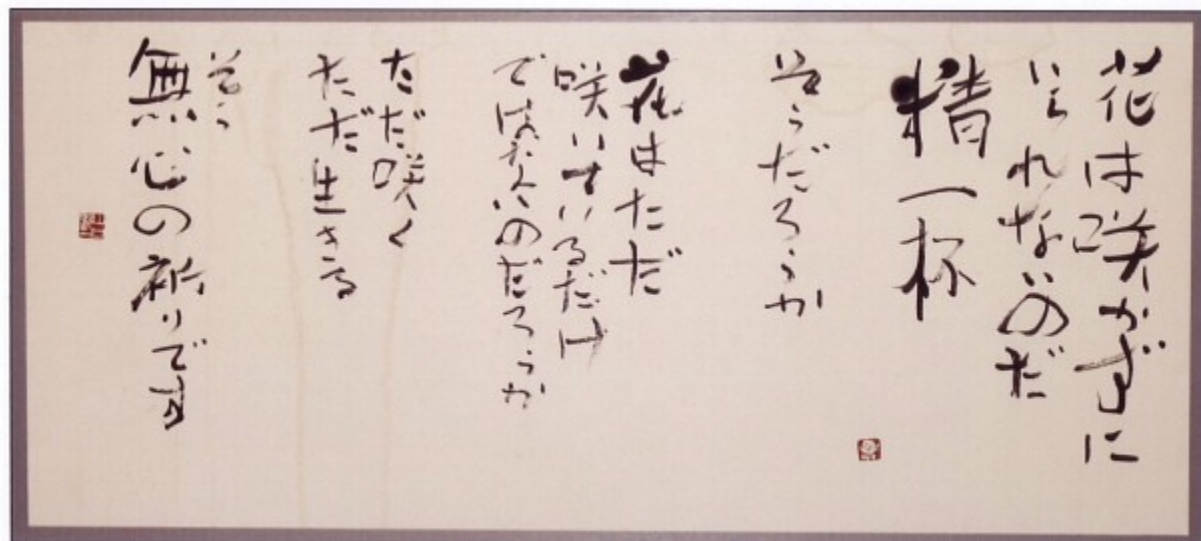 花は咲かずに
いられないのだ
精一杯
そうだろうか
花はただ
咲いているだけ
ではないのだろうか
ただ咲く
ただ生きる
そう
無心の祈りです